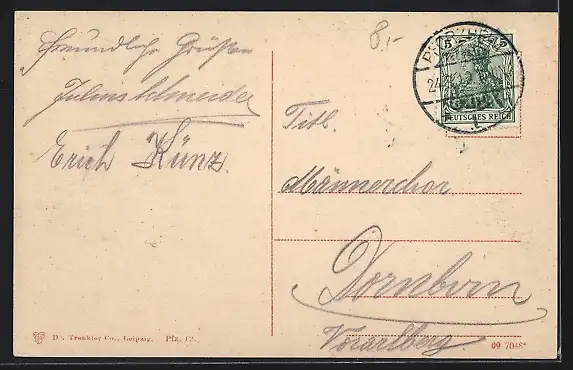 Freundliche Grüße
Julius Schneider
Erich Künz.
8,-
PFORZHEIM
5
DEUTSCHES REICH
Titl.
Männerchor
Dornbirn
Vorarlberg.
Dr. Trenkler Co., Leipzig. Pfz. 12.
09 7048*